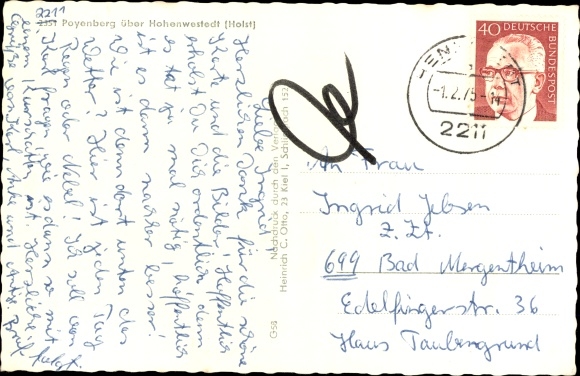 2211
2351 Poyenberg über Hohenwestedt (Holst)
Liebe Ingrid
Herzlichen Dank für die schöne
Karte und die Bilder! Hoffentlich
erholst Du Dich ordentlich, denn
es tat ja mal nötig, hoffentlich
ist es dann nachher besser!
Wie ist denn dort unten das
Wetter? Hier ist jeden Tag
Regen oder Nebel! Ich soll von
Karl fragen, wie es denn so mit
einem ist. Herzliche
Grüße von Karl, Anke und
G58
Nachdruck durch den Verlag
Heinrich C. Otto, 23 Kiel 1, 152
40 DEUTSCHE
BUNDESPOST
-1.2.75-
2211
An Frau
Ingrid Jebsen
z. Zt.
699 Bad Mergentheim
Edelfingerstr. 36
Haus Taubergrund